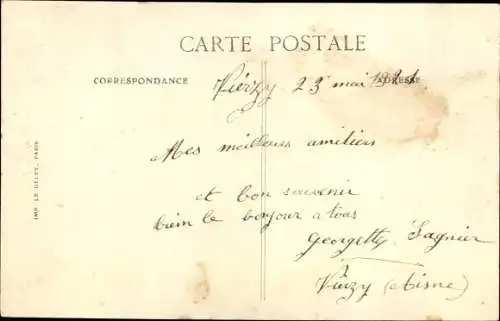 CARTE POSTALE
CORRESPONDANCE
ADRESSE
Vierzy 23 mai 1921.
Mes meilleurs amitiers
et bon souvenir
bien le bonjour a tous
Georgette Lagnier
Vierzy (Aisne)
IMP. LE DELEY, PARIS